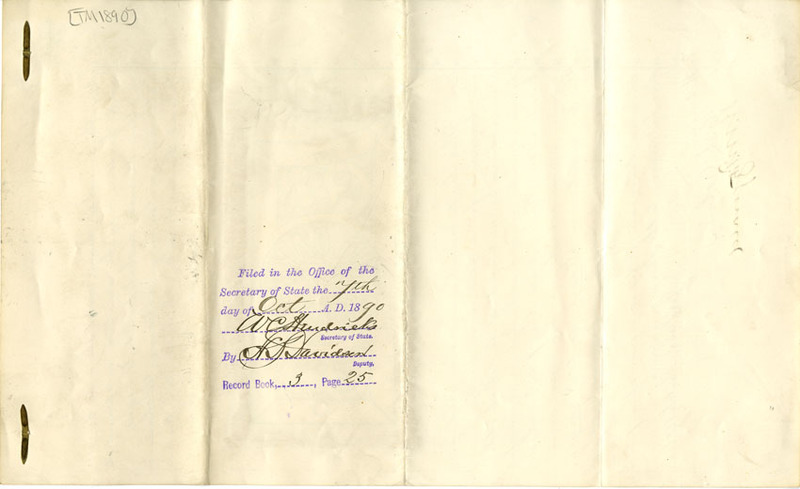 [TM1890]
Filed in the Office of the
Secretary of State the 7th
day of Oct A. D. 1890
W C Hendricks
Secretary of State.
By Davidson
Deputy.
Record Book, 3, Page 25